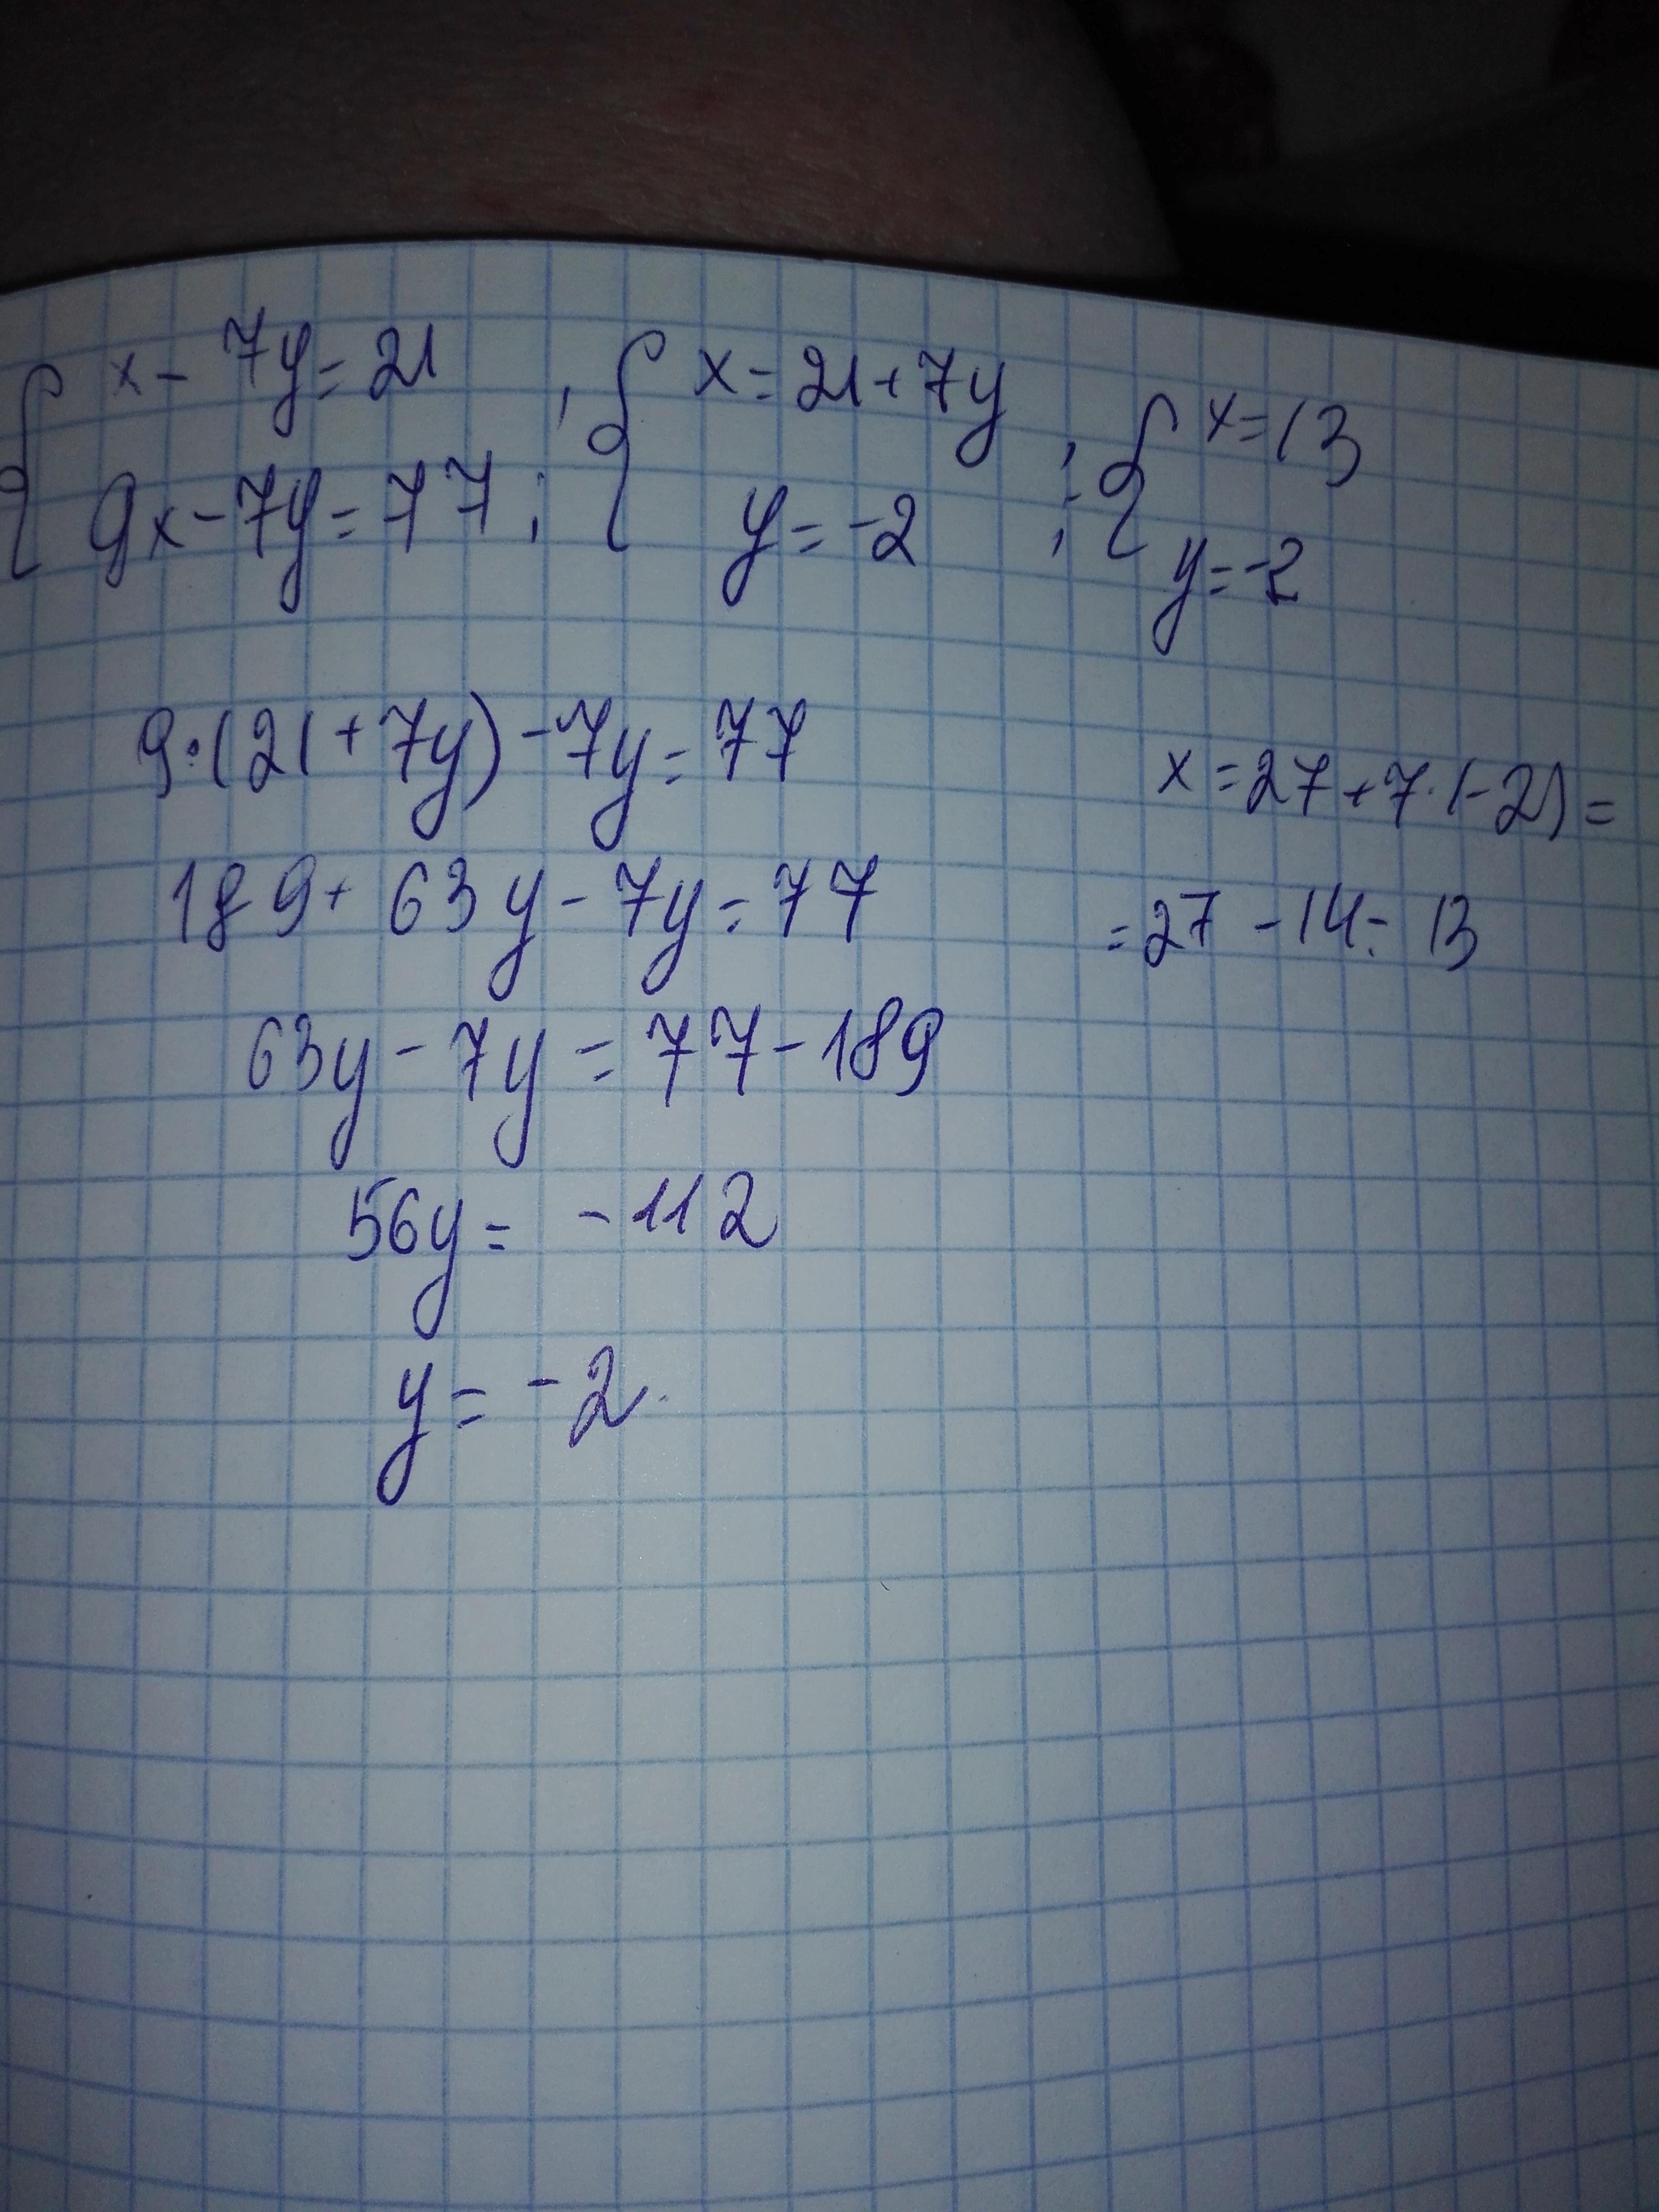 { x - 7y = 21 ; { x = 21 + 7y ; { x = 13
9x - 7y = 77 ; y = -2 ; y = -2
9·(21 + 7y) - 7y = 77
189 + 63y - 7y = 77
63y - 7y = 77 - 189
56y = -112
y = -2.
x = 27 + 7·(-2) =
= 27 - 14 = 13